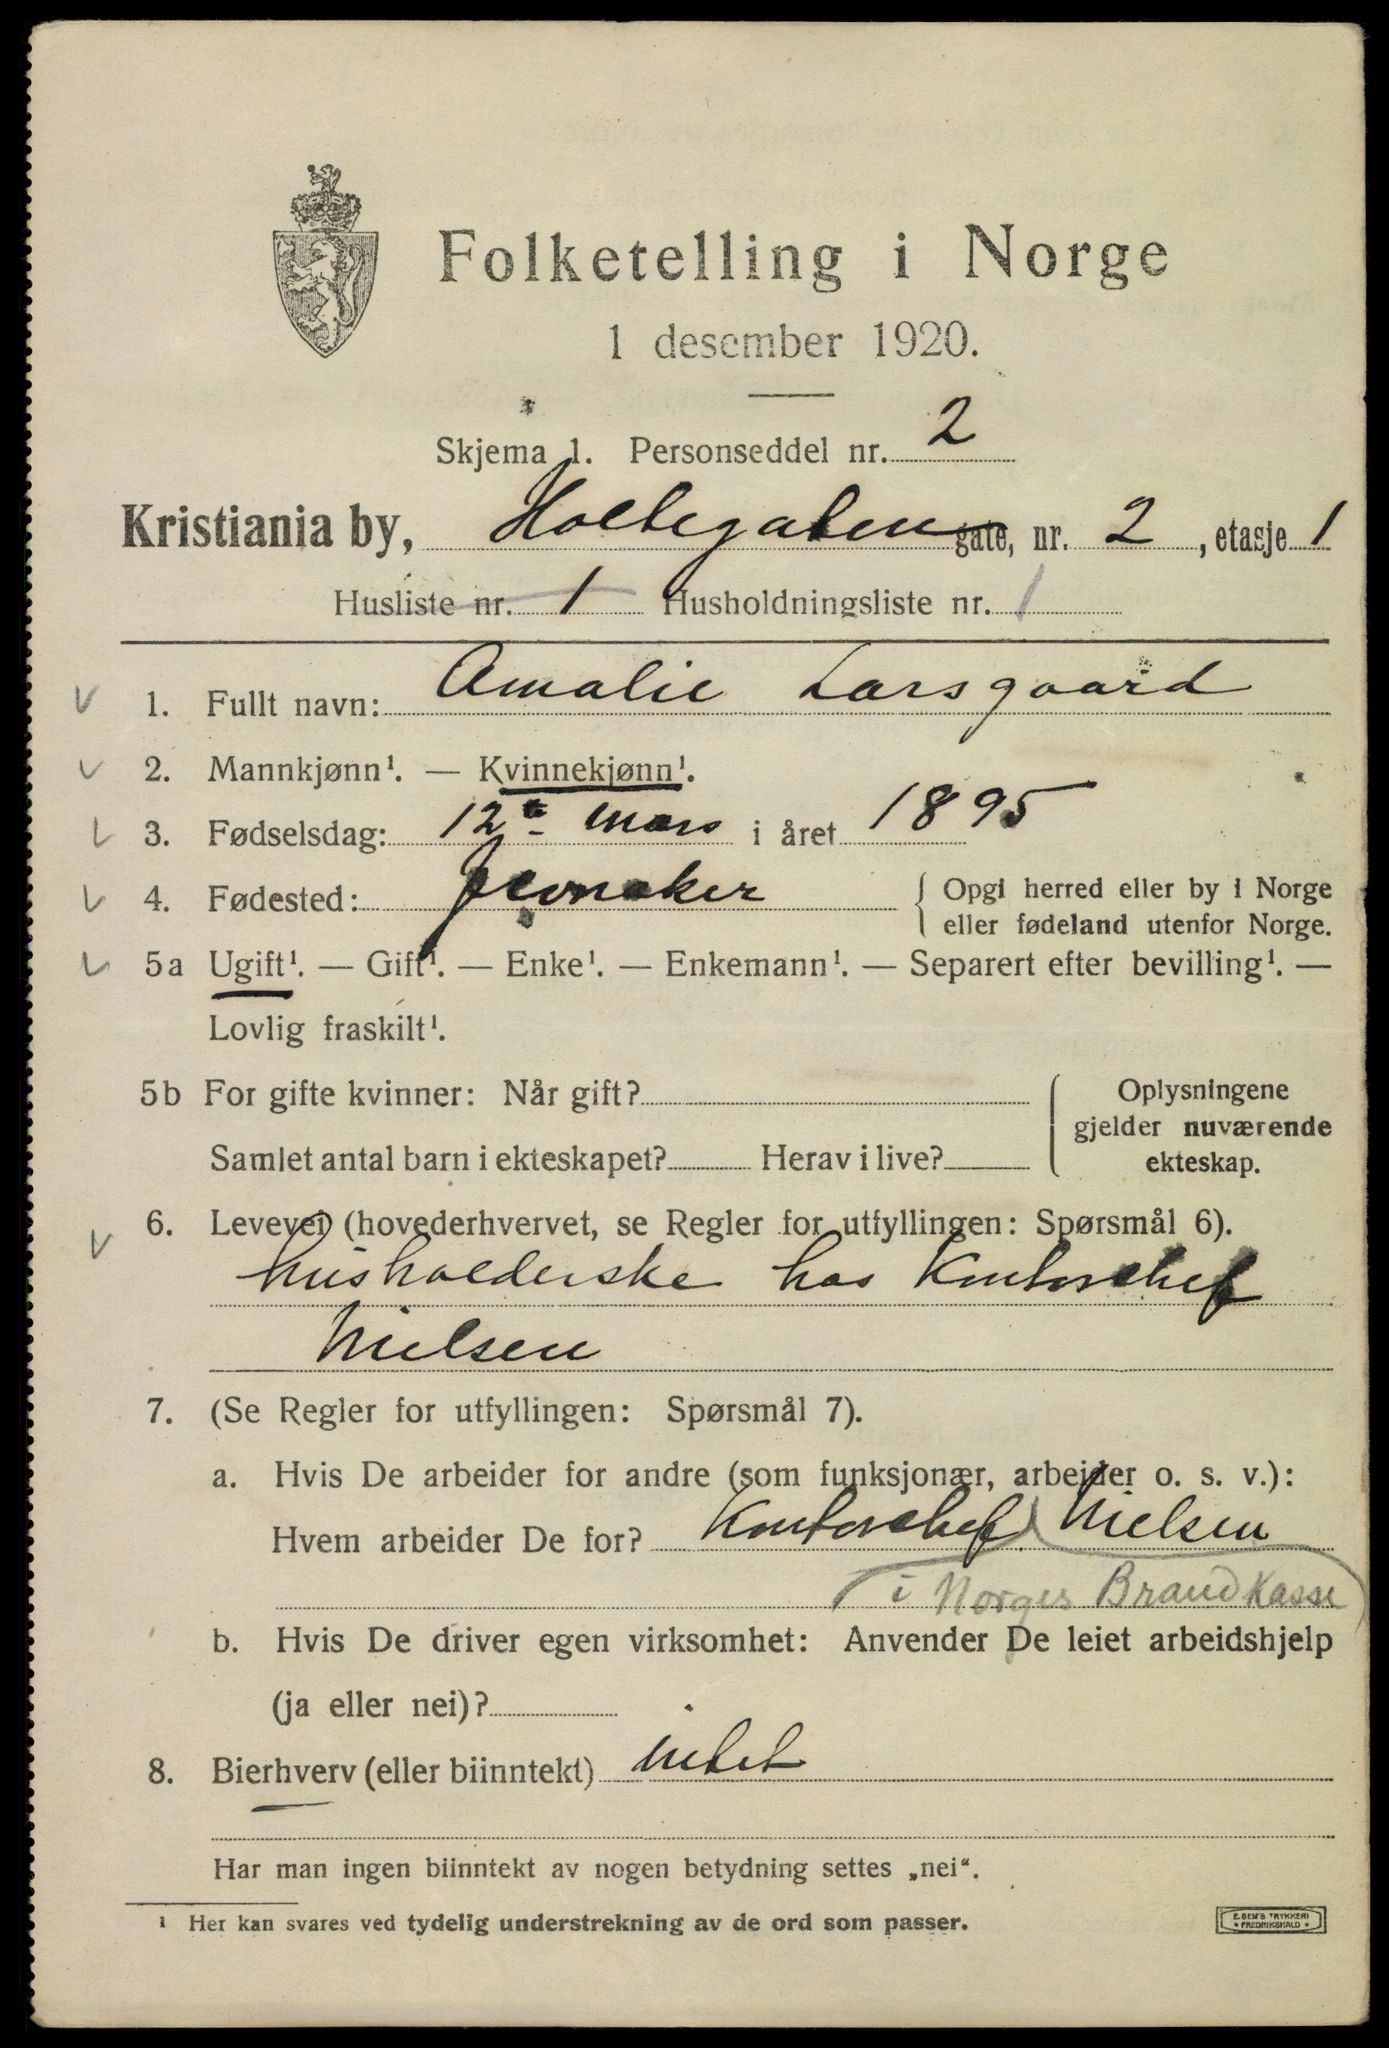 Folketelling i Norge
1 desember 1920.
Skjema 1. Personseddel nr. 2
Kristiania by, Holtegaten gate, nr. 2, etasje 1
Husliste nr. 1 Husholdningsliste nr. 1
1. Fullt navn: Amalie Larsgaard
2. Mannkjønn¹. — Kvinnekjønn¹.
3. Fødselsdag: 12te mars i året 1895
4. Fødested: Jevnaker { Opgi herred eller by i Norge
eller fødeland utenfor Norge.
5a Ugift¹. — Gift¹. — Enke¹. — Enkemann¹. — Separert efter bevilling¹. —
Lovlig fraskilt¹.
5b For gifte kvinner: Når gift? { Oplysningene
gjelder nuværende
Samlet antal barn i ekteskapet? Herav i live? ekteskap.
6. Levevei (hovederhvervet, se Regler for utfyllingen: Spørsmål 6).
husholderske hos Kontorchef
Nielsen
7. (Se Regler for utfyllingen: Spørsmål 7).
a. Hvis De arbeider for andre (som funksjonær, arbeider o. s. v.):
Hvem arbeider De for? Kontorchef Nielsen
i Norges Brandkasse
b. Hvis De driver egen virksomhet: Anvender De leiet arbeidshjelp
(ja eller nei)?
8. Bierhverv (eller biinntekt) intet
Har man ingen biinntekt av nogen betydning settes „nei“.
¹ Her kan svares ved tydelig understrekning av de ord som passer.
E. SEM'S TRYKKERI
FREDRIKSHALD